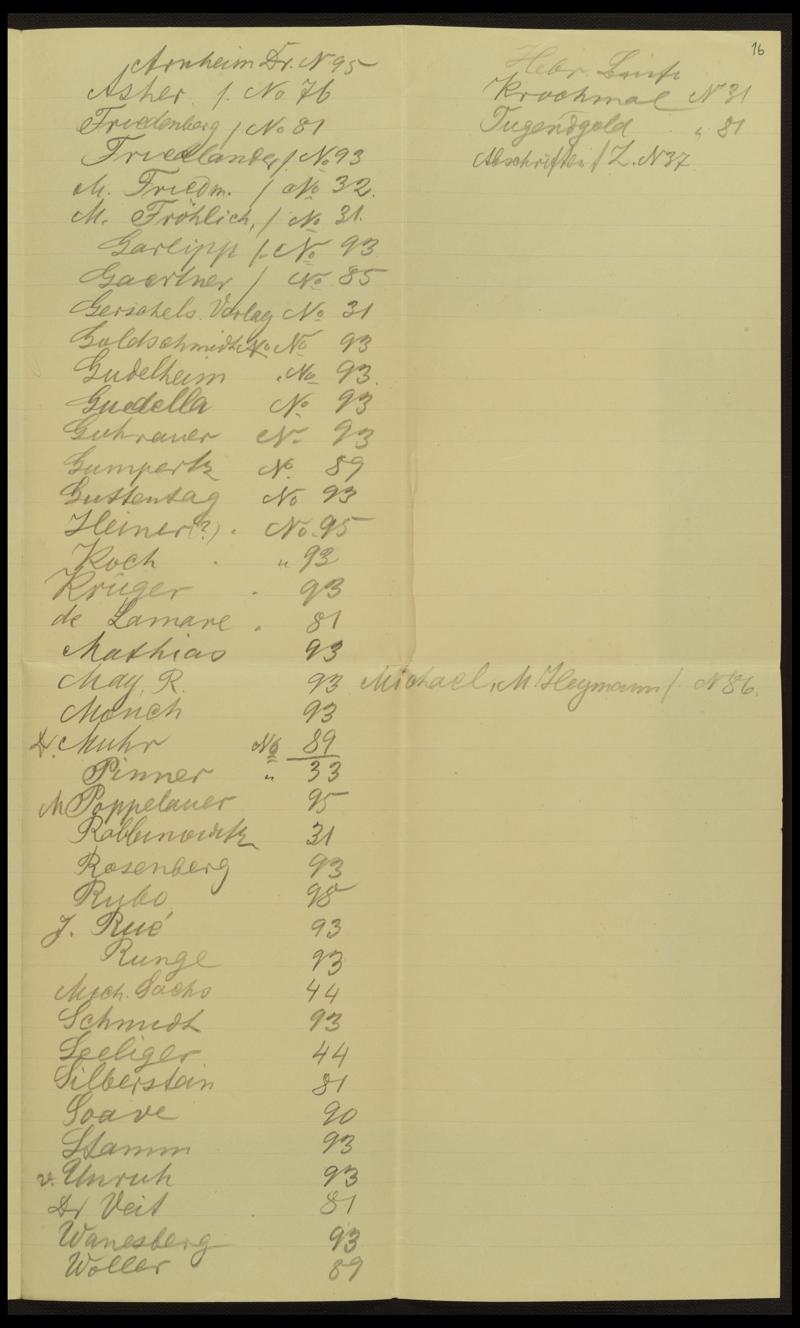 16
Arnheim Dr. N. 95
Asher /. No 76
Friedenberg / No 81
Friedländer / No 93
M. Friedm. / No 32.
M. Fröhlich, / No 31.
Garlipp /. No 93
Gaertner / No 85
Gerschels Verlag No 31
Goldschmidt No 93
Gudelheim No 93.
Guedella No 93
Guhrauer No 93
Gumpertz No 89
Guttentag No 93
Heiner (?) . No. 95
Koch . " 93
Krüger . 93
de Lamare . 81
Mathias 93
May, R. 93
Mönch 93
Dr. Muhr No 89
Pinner " 33
M Poppelauer 95
Rabbinowitz 31
Rosenberg 93
Rubo 98
J. Rué 93
Runge 93
Mich. Sachs 44
Schmidt 93
Seeliger 44
Silberstein 81
Soave 90
Stamm 93
v. Unruh 93
Dr Veit 81
Wanesberg 93
Woller 89
Hebr. Briefe
Krochmal N 31
Tugendgold " 81
Abschriften / Z. N 37
Michael, M. Heymann /. N 86.